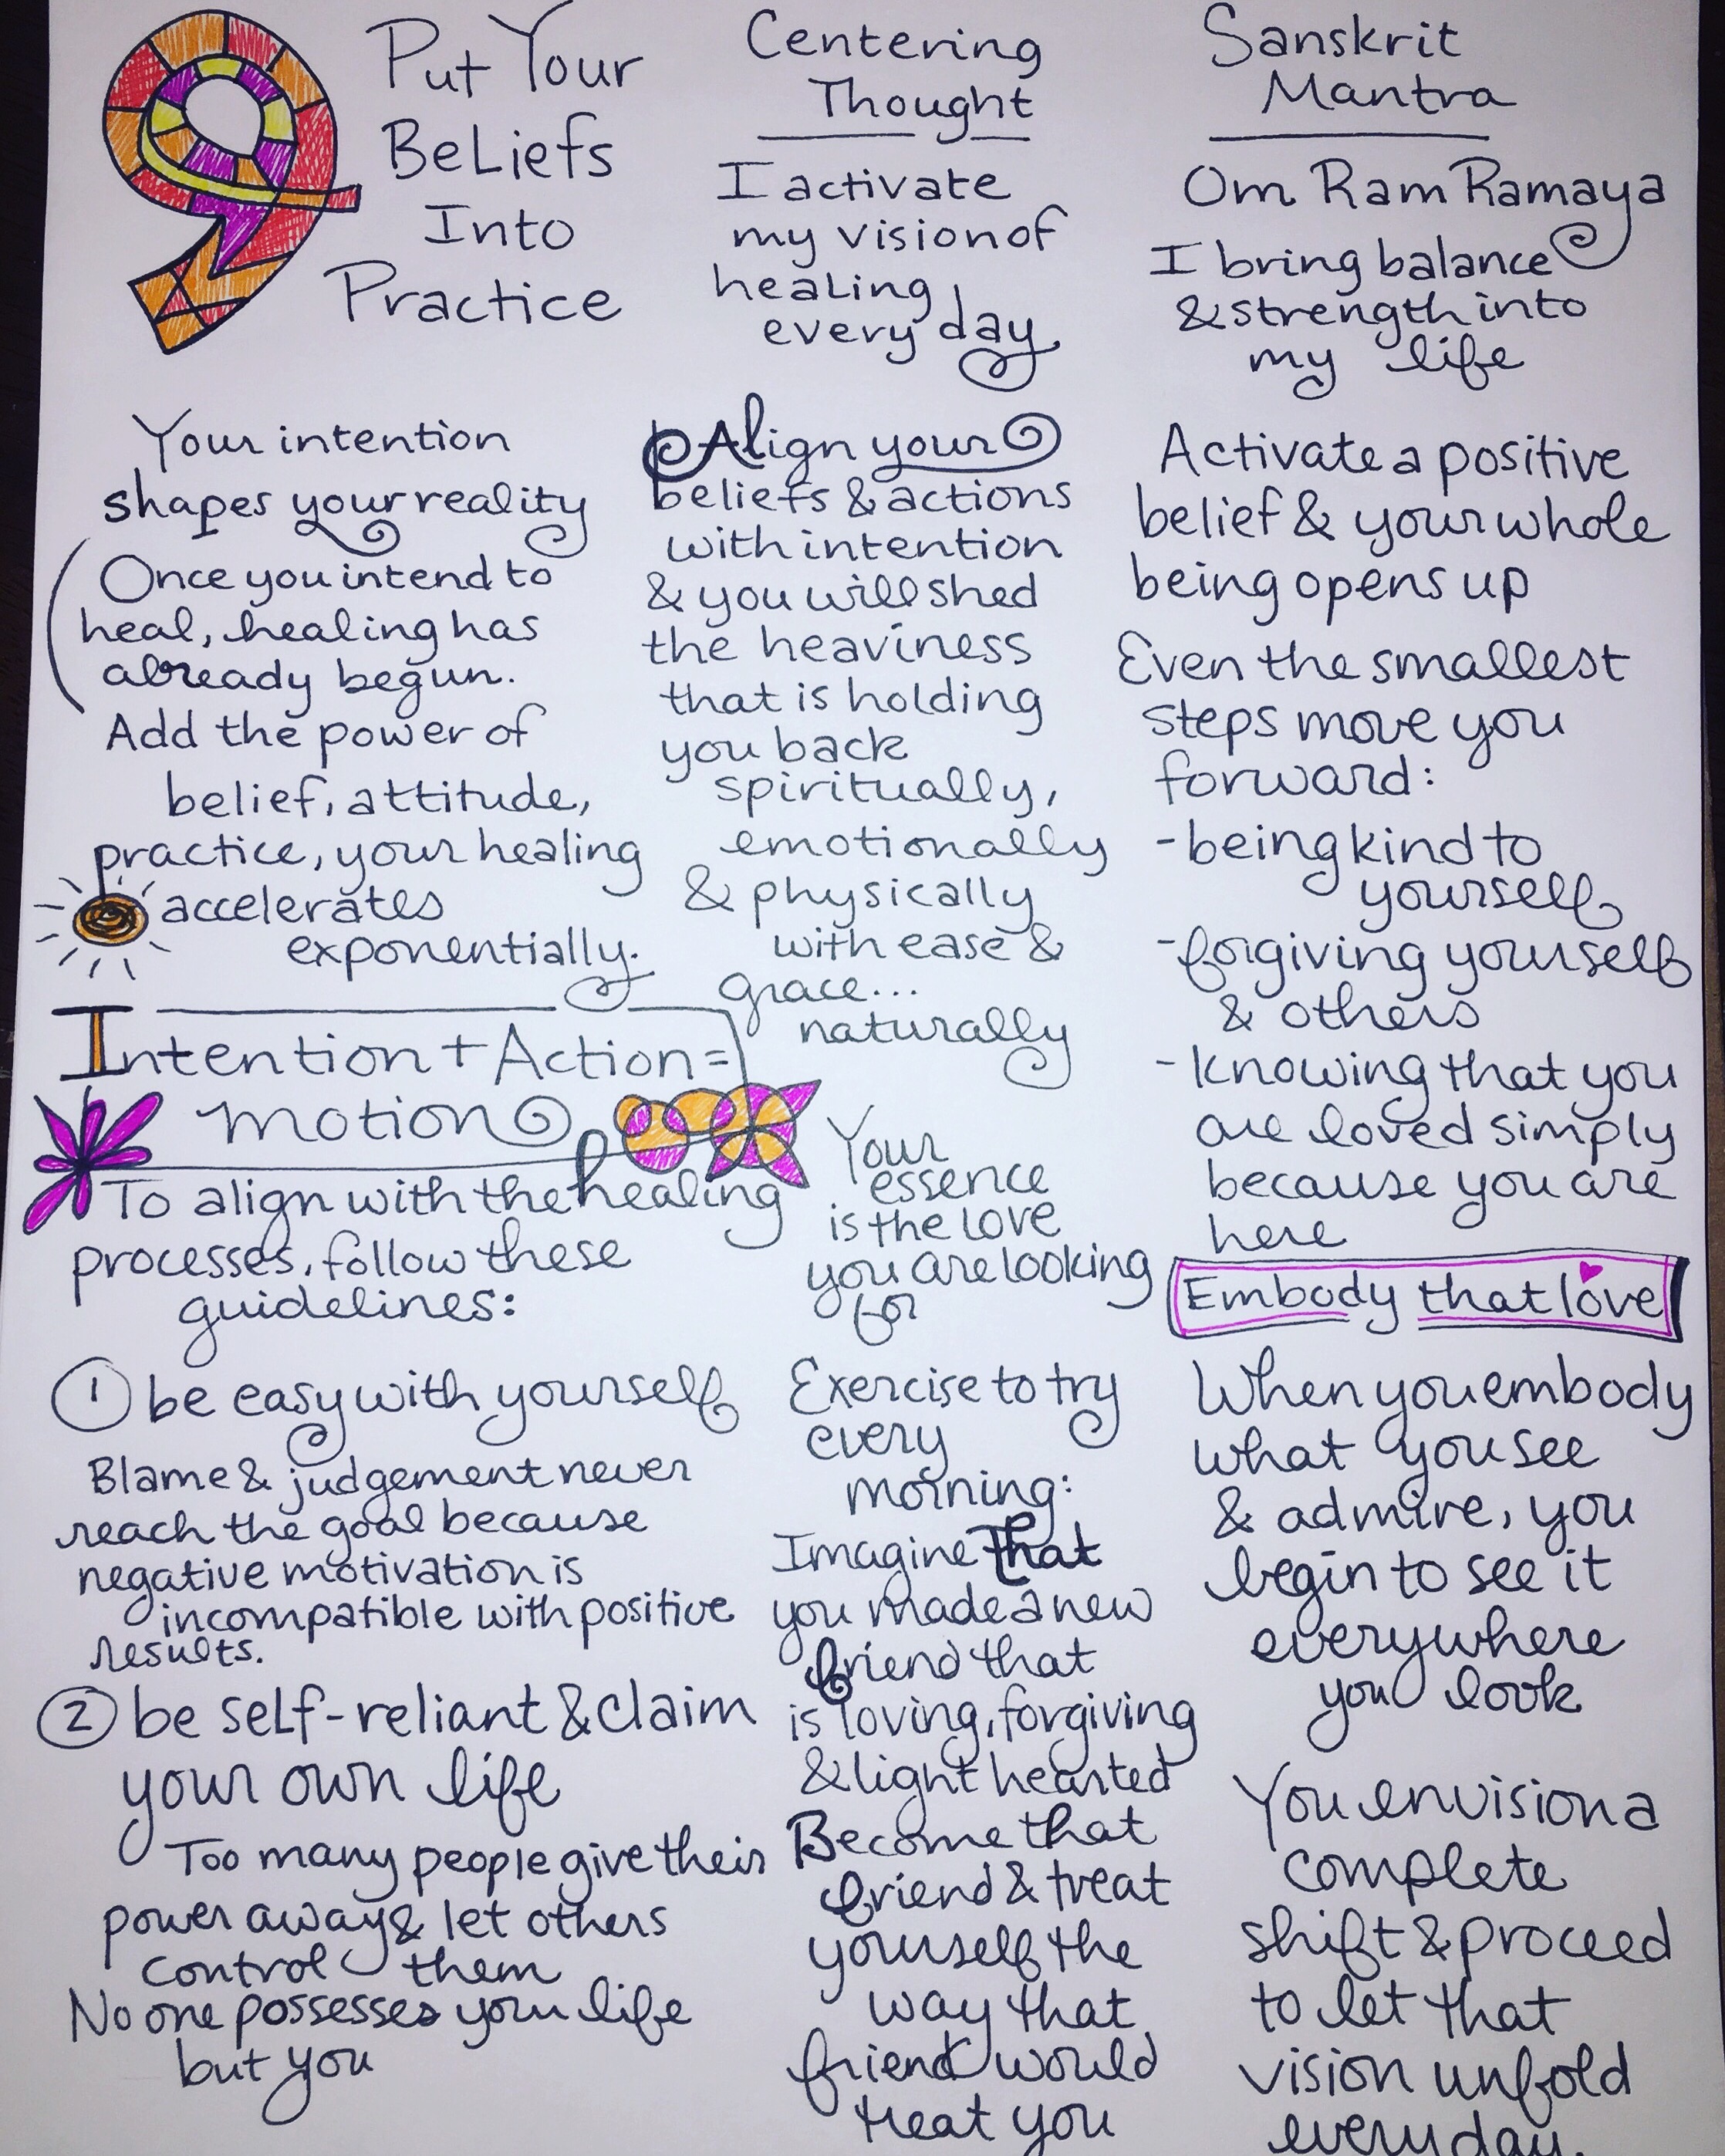 9
Put Your
Beliefs
Into
Practice
Centering
Thought
I activate
my vision of
healing
every day
Sanskrit
Mantra
Om Ram Ramaya
I bring balance
& strength into
my life
Your intention
shapes your reality
Once you intend to
heal, healing has
already begun.
Add the power of
belief, attitude,
practice, your healing
accelerates
exponentially.
Intention + Action =
motion
To align with the healing
processes, follow these
guidelines:
1 be easy with yourself
Blame & judgement never
reach the goal because
negative motivation is
incompatible with positive
results.
2 be self-reliant & claim
your own life
Too many people give their
power away & let others
control them
No one possesses your life
but you
Align your
beliefs & actions
with intention
& you will shed
the heaviness
that is holding
you back
spiritually,
emotionally
& physically
with ease &
grace...
naturally
Your
essence
is the love
you are looking
for
Exercise to try
every
morning:
Imagine that
you made a new
friend that
is loving, forgiving
& light hearted
Become that
friend & treat
yourself the
way that
friend would
treat you
Activate a positive
belief & your whole
being opens up
Even the smallest
steps move you
forward:
- being kind to
yourself
- forgiving yourself
& others
- Knowing that you
are loved simply
because you are
here
Embody that love
When you embody
what you see
& admire, you
begin to see it
everywhere
you look
You envision a
complete
shift & proceed
to let that
vision unfold
every day.